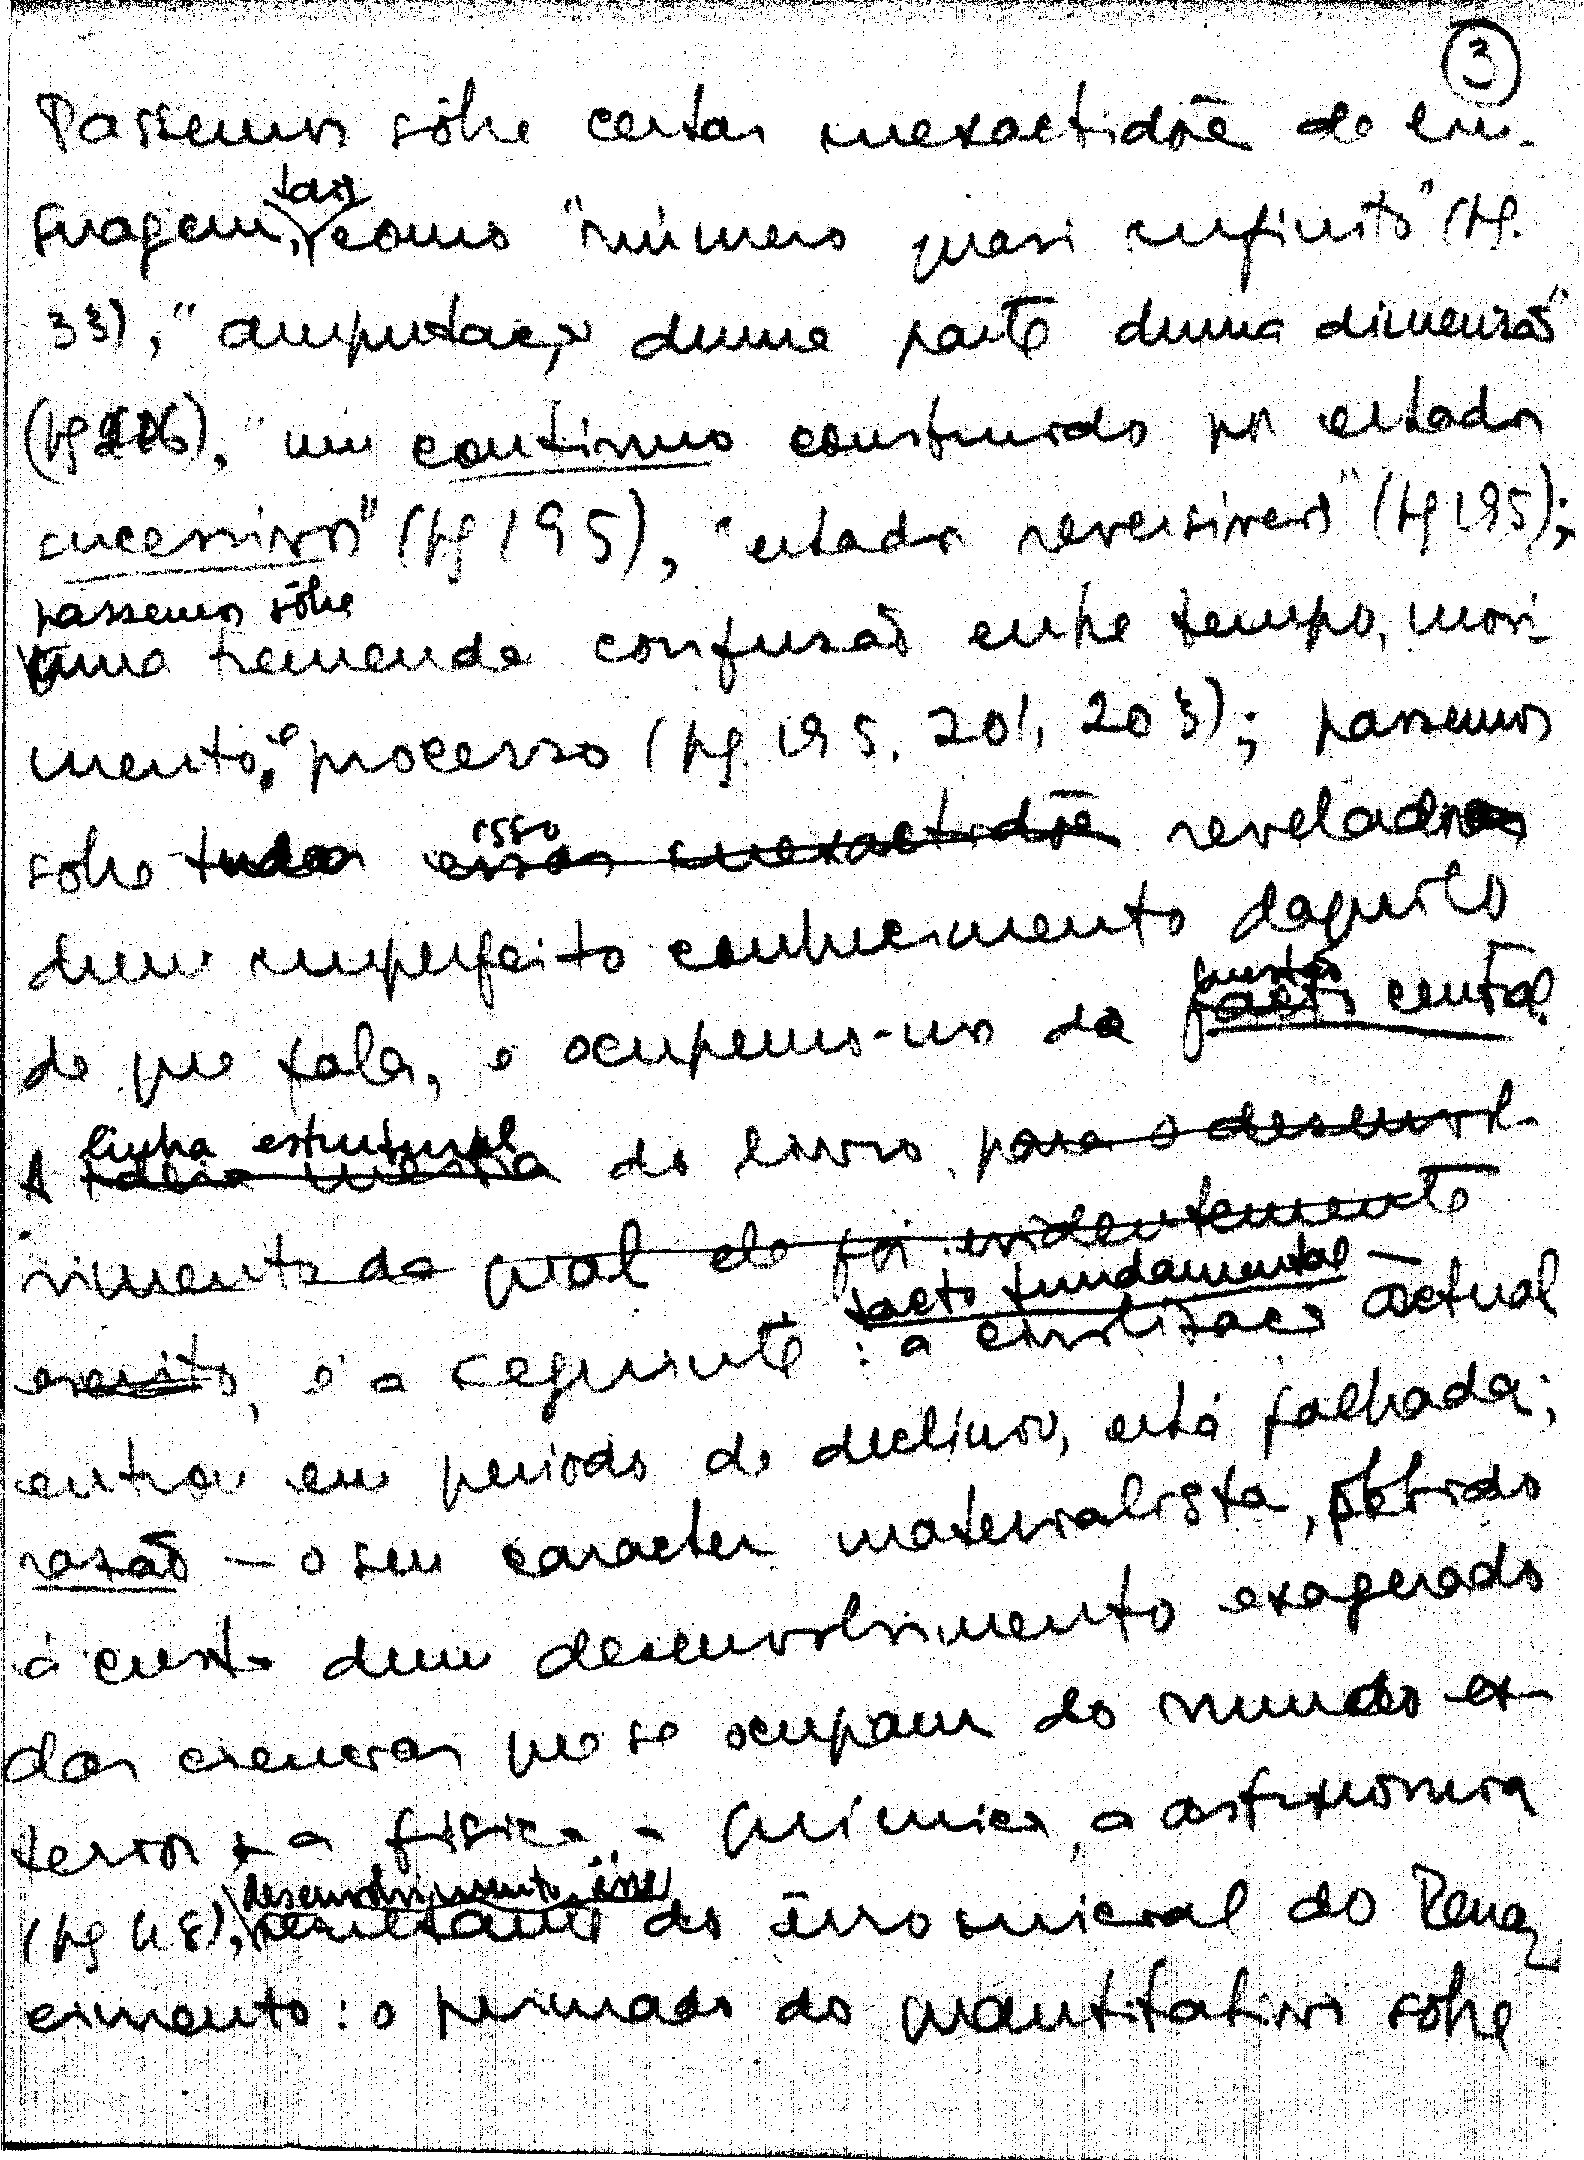 3
Passemos sôbre certas inexactidões de lin-
guagem, tais como "número quasi infinito" (pg.
33), "amputação duma parte duma dimensão"
(pg 206), "um contínuo construido por estados
sucessivos" (pg 195), "estados reversiveis" (pg 195);
passemos sôbre
uma tremenda confusão entre tempo, movi-
mento, e processo (pg. 195, 201, 203); passemos
sôbre tudo isso essas inexactidões reveladoras
dum imperfeito conhecimento daquilo
de que fala, e ocupemo-nos da questão facto central.
A linha estrutural ideia mestra do livro, para o desenvol-
vimento da qual ele foi evidentemente
escrito, é a seguinte: facto fundamental – a civilização actual
entrou em periodo de declinio, está falhada;
razão – o seu caracter materialista, obtido
á custa dum desenvolvimento exagerado
das ciencias que se ocupam do mundo ex-
terior – a fisica, a química, a astronomia
(pg 48), desenvolvimento êsse resultante do êrro inicial do Renas
cimento: o primado do quantitativo sôbre